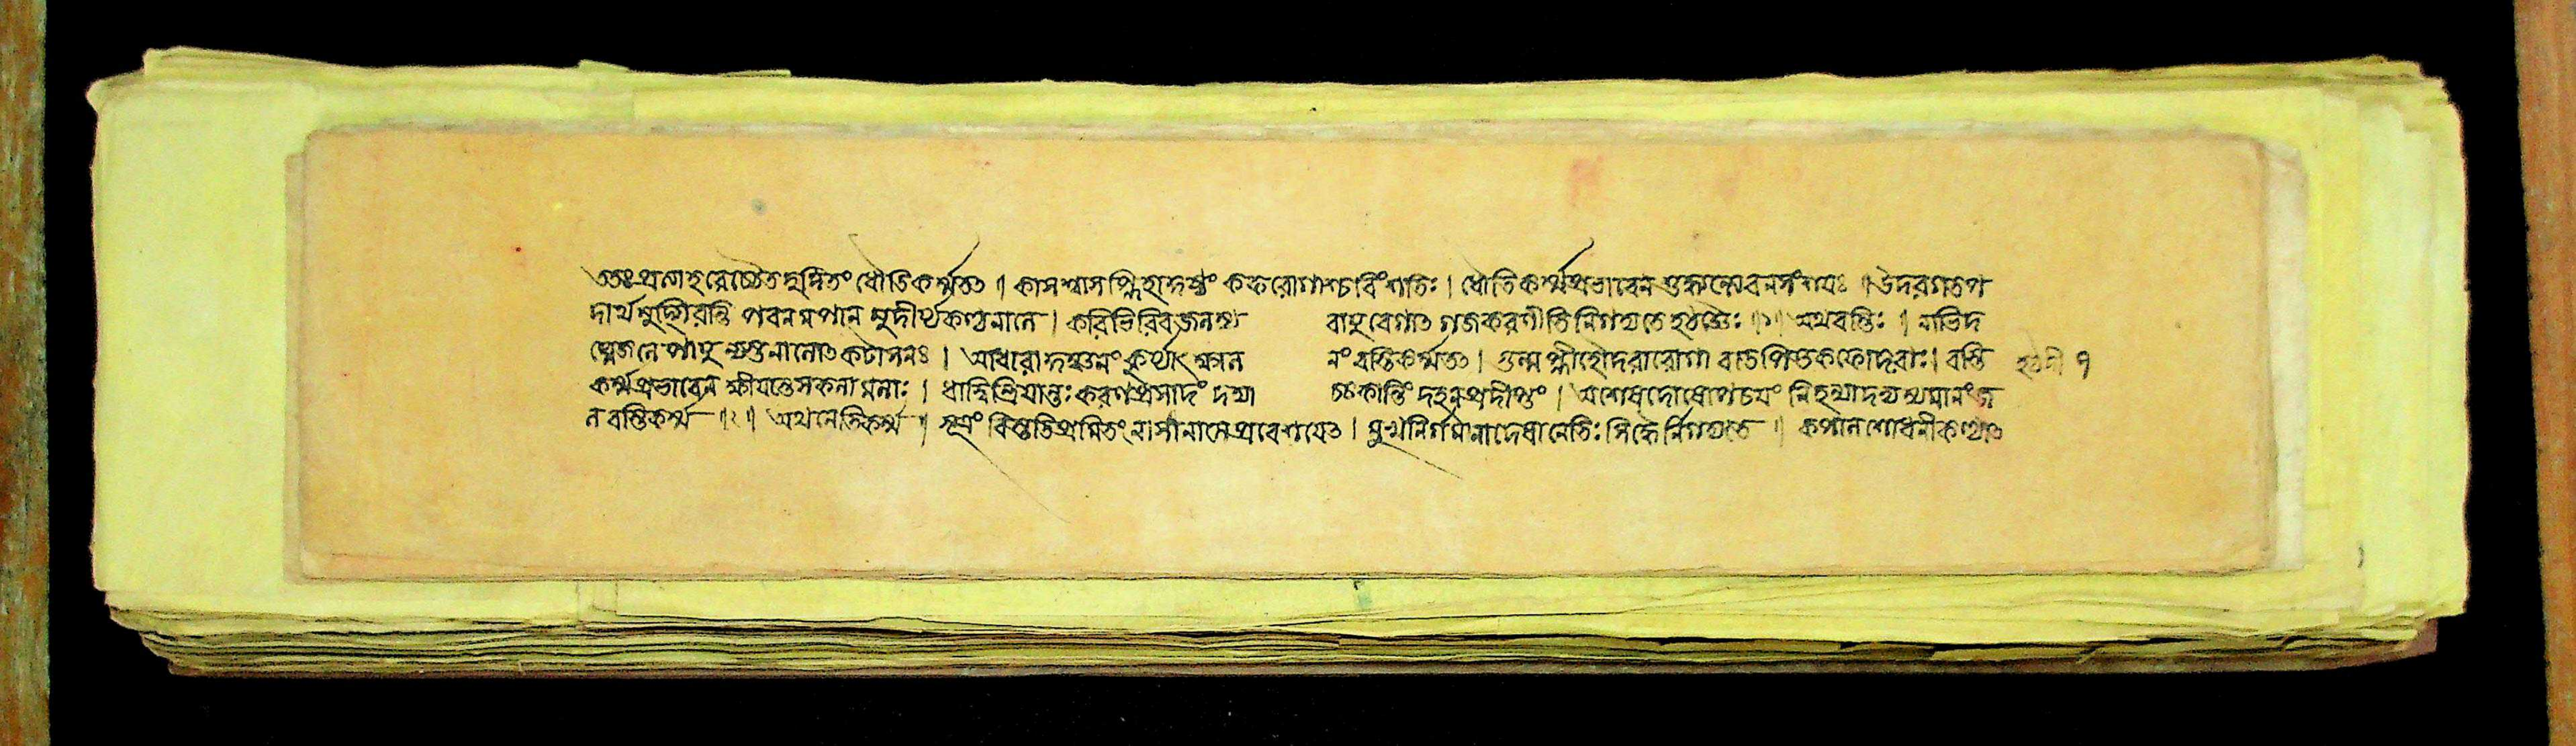 ততঃ প্রত্যাহরেচ্চৈতদুদিতং ধৌতিকর্ম্ম তৎ ॥ কাসশ্বাসপ্লিহাকুষ্ঠং কফরোগাশ্চ বিংশতিঃ । ধৌতিকর্ম্মপ্রভাবেন শুদ্ধ্যন্তে ব ন সংশয়ঃ ॥ উদরগতপ
দার্থমুদ্গীরন্তি পবনমপান মুদীর্থ কণ্ঠনালে । করিভিরিব জলস্য বায়ুবেগাৎ গজকরণীতি নিগদ্যতে হঠজ্ঞৈঃ ॥১॥ অথ বস্তিঃ । নাভিদ
ঘ্নেজলে পায়ু ন্যস্তনালোৎকটাসনঃ । আধারাকুঞ্চনং কুর্য্যাৎ ক্ষালনং বস্তিকর্ম্ম তৎ । গুল্মপ্লীহোদরারোগা বাতপিত্তকফোদ্ভবাঃ । বস্তি
কর্ম্মপ্রভাবেন ক্ষীয়ন্তে সকলামলাঃ । ধাত্বিন্দ্রিয়ান্তঃকরণপ্রসাদং দদ্যাচ্চ কান্তিং দহনপ্রদীপ্তং । অশেষদোষোপচয়ং নিহন্যাদভ্যস্যমানং জ
ল বস্তিকর্ম্ম ॥২॥ অথ নেতিকর্ম্ম । সূত্রং বিতস্তিপ্রমিতং নাসানালে প্রবেশয়েৎ । মুখনির্গমনাদেষা নেতিঃ সিদ্ধৈর্নিগদ্যতে । কপালশোধনীকণ্ঠ্যাৎ